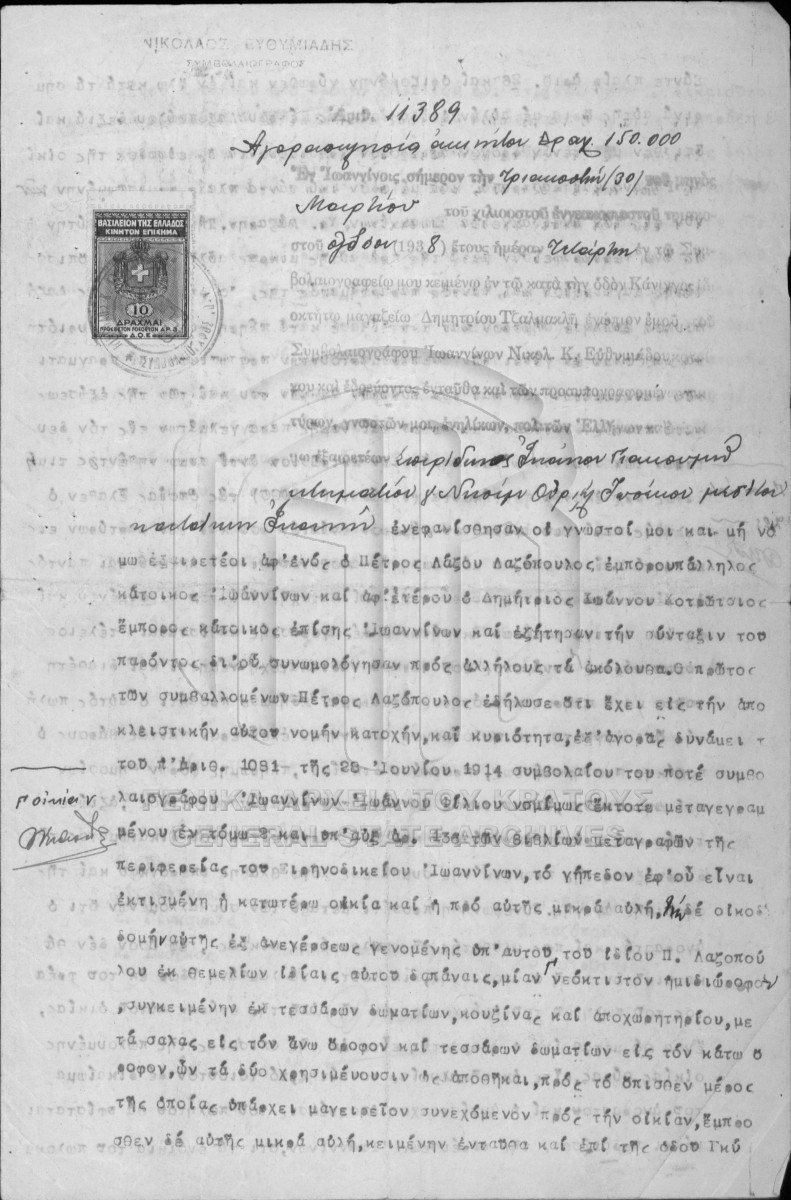 ΝΙΚΟΛΑΟΣ ΕΥΘΥΜΙΑΔΗΣ
ΣΥΜΒΟΛΑΙΟΓΡΑΦΟΣ
Αριθ. 11389
Αγοραπωλησία ακινήτου Δραχ. 150.000
Ἐν Ἰωαννίνοις σήμερον τὴν τριακοστήν (30) τοῦ μηνὸς
Μαρτίου
τοῦ χιλιοστοῦ ἐννεακοσιοστοῦ τριακο
στοῦ ὀγδόου (1938) ἔτους ἡμέραν Τετάρτη ἐν τῷ Συμ
βολαιογραφείῳ μου κειμένῳ ἐν τῷ κατὰ τὴν ὁδὸν Κάνιγγος
οκτήτῳ μαγαζείῳ Δημητρίου Τζαλμακλῆ ἐνώπιον ἐμοῦ τοῦ
Συμβολαιογράφου Ἰωαννίνων Νικολ. Κ. Εὐθυμιάδου κατοί
κου καὶ ἑδρεύοντος ἐνταῦθα καὶ τῶν προσυπογραφομένων μαρ
τύρων, γνωστῶν μοι, ἐνηλίκων, πολιτῶν Ἑλλήνων
μω ἐξαιρετέων Σπυρίδωνος
κτηματίου Νισήμ μεσίτου
κατοίκων ἐνεφανίσθησαν οἱ γνωστοί μοι καὶ μή νό
μῳ ἐξαιρετέοι ἀφ'ἑνός ὁ Πέτρος Λάζου Λαζόπουλος ἐμπορουπάλληλος
κάτοικος Ἰωαννίνων καί ἀφ'ἑτέρου ὁ Δημήτριος Ἰωάννου Κοτρώτσιος
ἔμπορος κάτοικος ἐπίσης Ἰωαννίνων καί ἐζήτησαν τήν σύνταξιν του
παρόντος δι'οὗ συνωμολόγησαν πρός ἀλλήλους τά ἀκόλουθα. Ο πρῶτος
τῶν συμβαλλομένων Πέτρος Λαζόπουλος ἐδήλωσε ὅτι ἔχει εἰς τήν ἀπο
κλειστικήν αὐτου νομήν κατοχήν, καί κυριότητα, ἐξ'ἀγορᾶς δυνάμει τ
του ὑπ'Ἀριθ. 1081 τῆς 28 Ἰουνίου 1914 συμβολαίου του ποτέ συμβο
λαιογράφου Ἰωαννίνων Ἰωάννου Φίλιου νομίμως ἔκτοτε μεταγεγραμ
μένου ἐν τόμῳ καί ὑπ'αὔξ Ἀρ. τῶν βιβλίων μεταγραφῶν τῆς
περιφερείας του Εἰρηνοδικείου Ἰωαννίνων, τό γήπεδον ἐφ'οὗ εἶναι
ἐκτισμένη ἡ κατωτέρω οἰκία καί ἡ πρό αὐτῆς μικρά αὐλή, τήν δέ οἰκοδ
δομήν αὐτῆς ἐξ ἀνεγέρσεως γενομένης ὑπ'αυτου, του ἰδίου Π. Λαζοπού
λου ἐκ θεμελίων ἰδίαις αὑτου δαπάναις, μίαν Γ νεόκτιστον ἡμιδιώροφον
, συγκειμένην ἐκ τεσσάρων δωματίων, κουζίνας καί ἀποχωρητηρίου, με
τά σαλας εἰς τόν ἄνω ὄροφον καί τεσσάρων δωματίων εἰς τόν κάτω ὄ
ροφον, ὧν τά δύο χρησιμέυουσιν ὡς ἀποθῆκαι, πρός τό ὄπισθεν μέρος
τῆς ὁποίας ὑπάρχει μαγειρεῖον συνεχόμενον πρός τήν οἰκίαν, ἔμπρο
σθεν δέ αὐτῆς μικρά αὐλή, κειμένην ἐνταυθα καί ἐπί τῆς ὁδου Γκύ
Γ οἰκίαν
ΒΑΣΙΛΕΙΟΝ ΤΗΣ ΕΛΛΑΔΟΣ
ΚΙΝΗΤΟΝ ΕΠΙΣΗΜΑ
10
ΔΡΑΧΜΑΙ
Δ.Ο.Ε.
ΓΕΝΙΚΑ ΑΡΧΕΙΑ ΤΟΥ ΚΡΑΤΟΥΣ
GENERAL STATE ARCHIVES